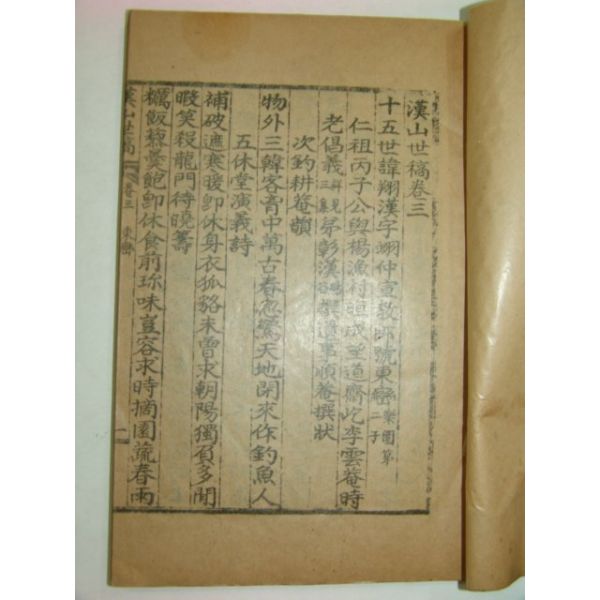 漢山世稿卷三
十五世諱翔漢字翊仲宣敎郞號東巒
樂園第
二子
仁祖丙子公與楊漁村
成望道齋
李雲菴時
老倡義
弟彰漢
撰遺事順菴撰狀
次釣耕菴韻
物外三韓客胷中萬古春忽驚天地閉來作釣魚人
五休堂演義詩
補破遮寒暖卽休身衣狐貉未曾求朝陽獨負多閒
暇笑殺龍門待曉籌
糲飯藜羹飽卽休食前珍味豈容求時摘園蔬春雨
漢山世稿
卷三
一